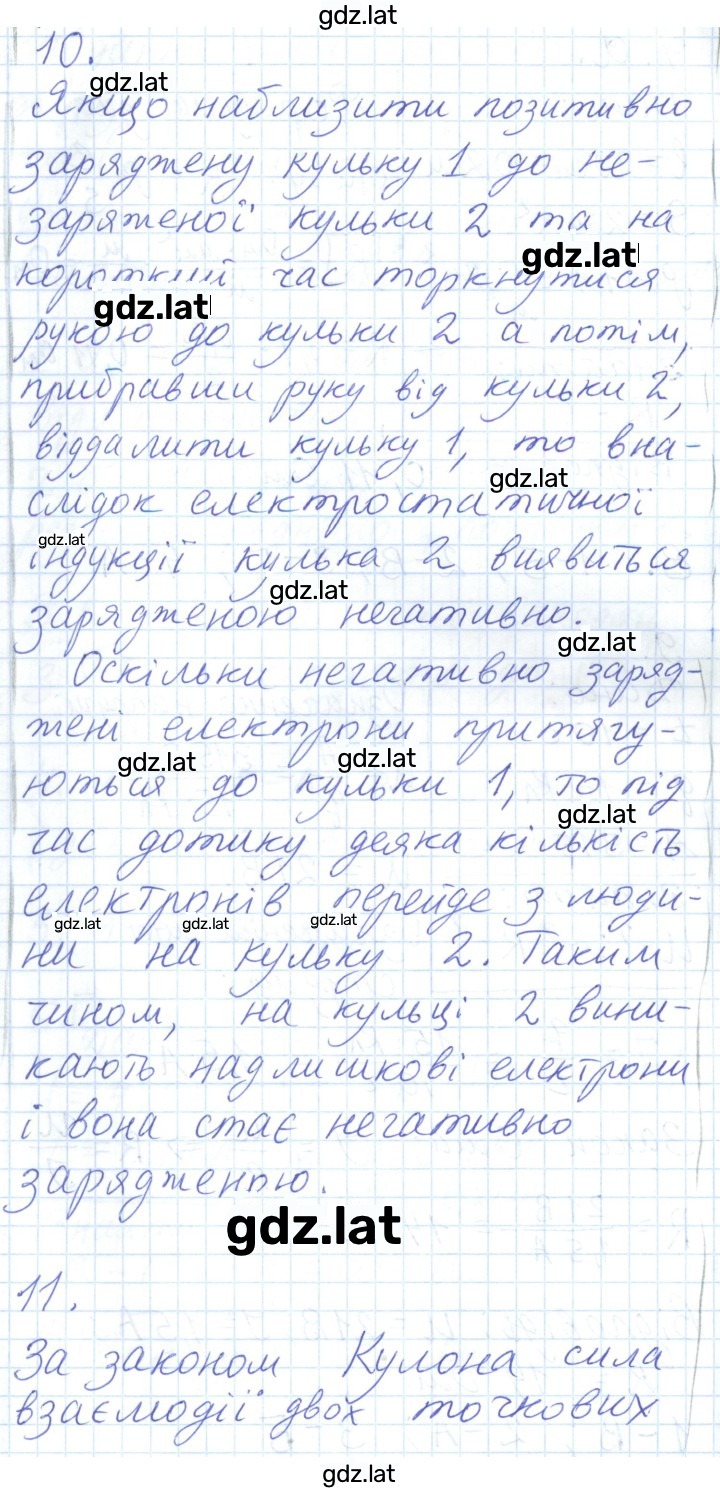 gdz.lat
10.
gdz.lat
Якщо наблизити позитивно
заряджену кульку 1 до не-
заряженої кульки 2 та на
gdz.lat
короткий час торкнутися
gdz.lat
рукою до кульки 2 а потім,
прибравши руку від кульки 2,
віддалити кульку 1, то вна-
gdz.lat
слідок електростатичної
gdz.lat
індукції килька 2 виявиться
gdz.lat
зарядженою негативно.
gdz.lat
Оскільки негативно заряд-
жені електрони притягу-
gdz.lat gdz.lat
ються до кульки 1, то під
gdz.lat
час дотику деяка кількість
електронів перейде з люди-
gdz.lat gdz.lat gdz.lat
ни на кульку 2. Таким
чином, на кульці 2 вини-
кають надлишкові електрони
і вона стає негативно
зарядженою.
gdz.lat
11.
За законом Кулона сила
взаємодії двох точкових
gdz.lat